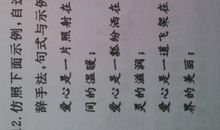 12. 仿照下面示例,自选
辞手法,句式与示例
爱心是一片照射在
间的温暖;
爱心是一瓢纷洒在
灵的滋润;
爱心是一道飞架在
界的美丽;